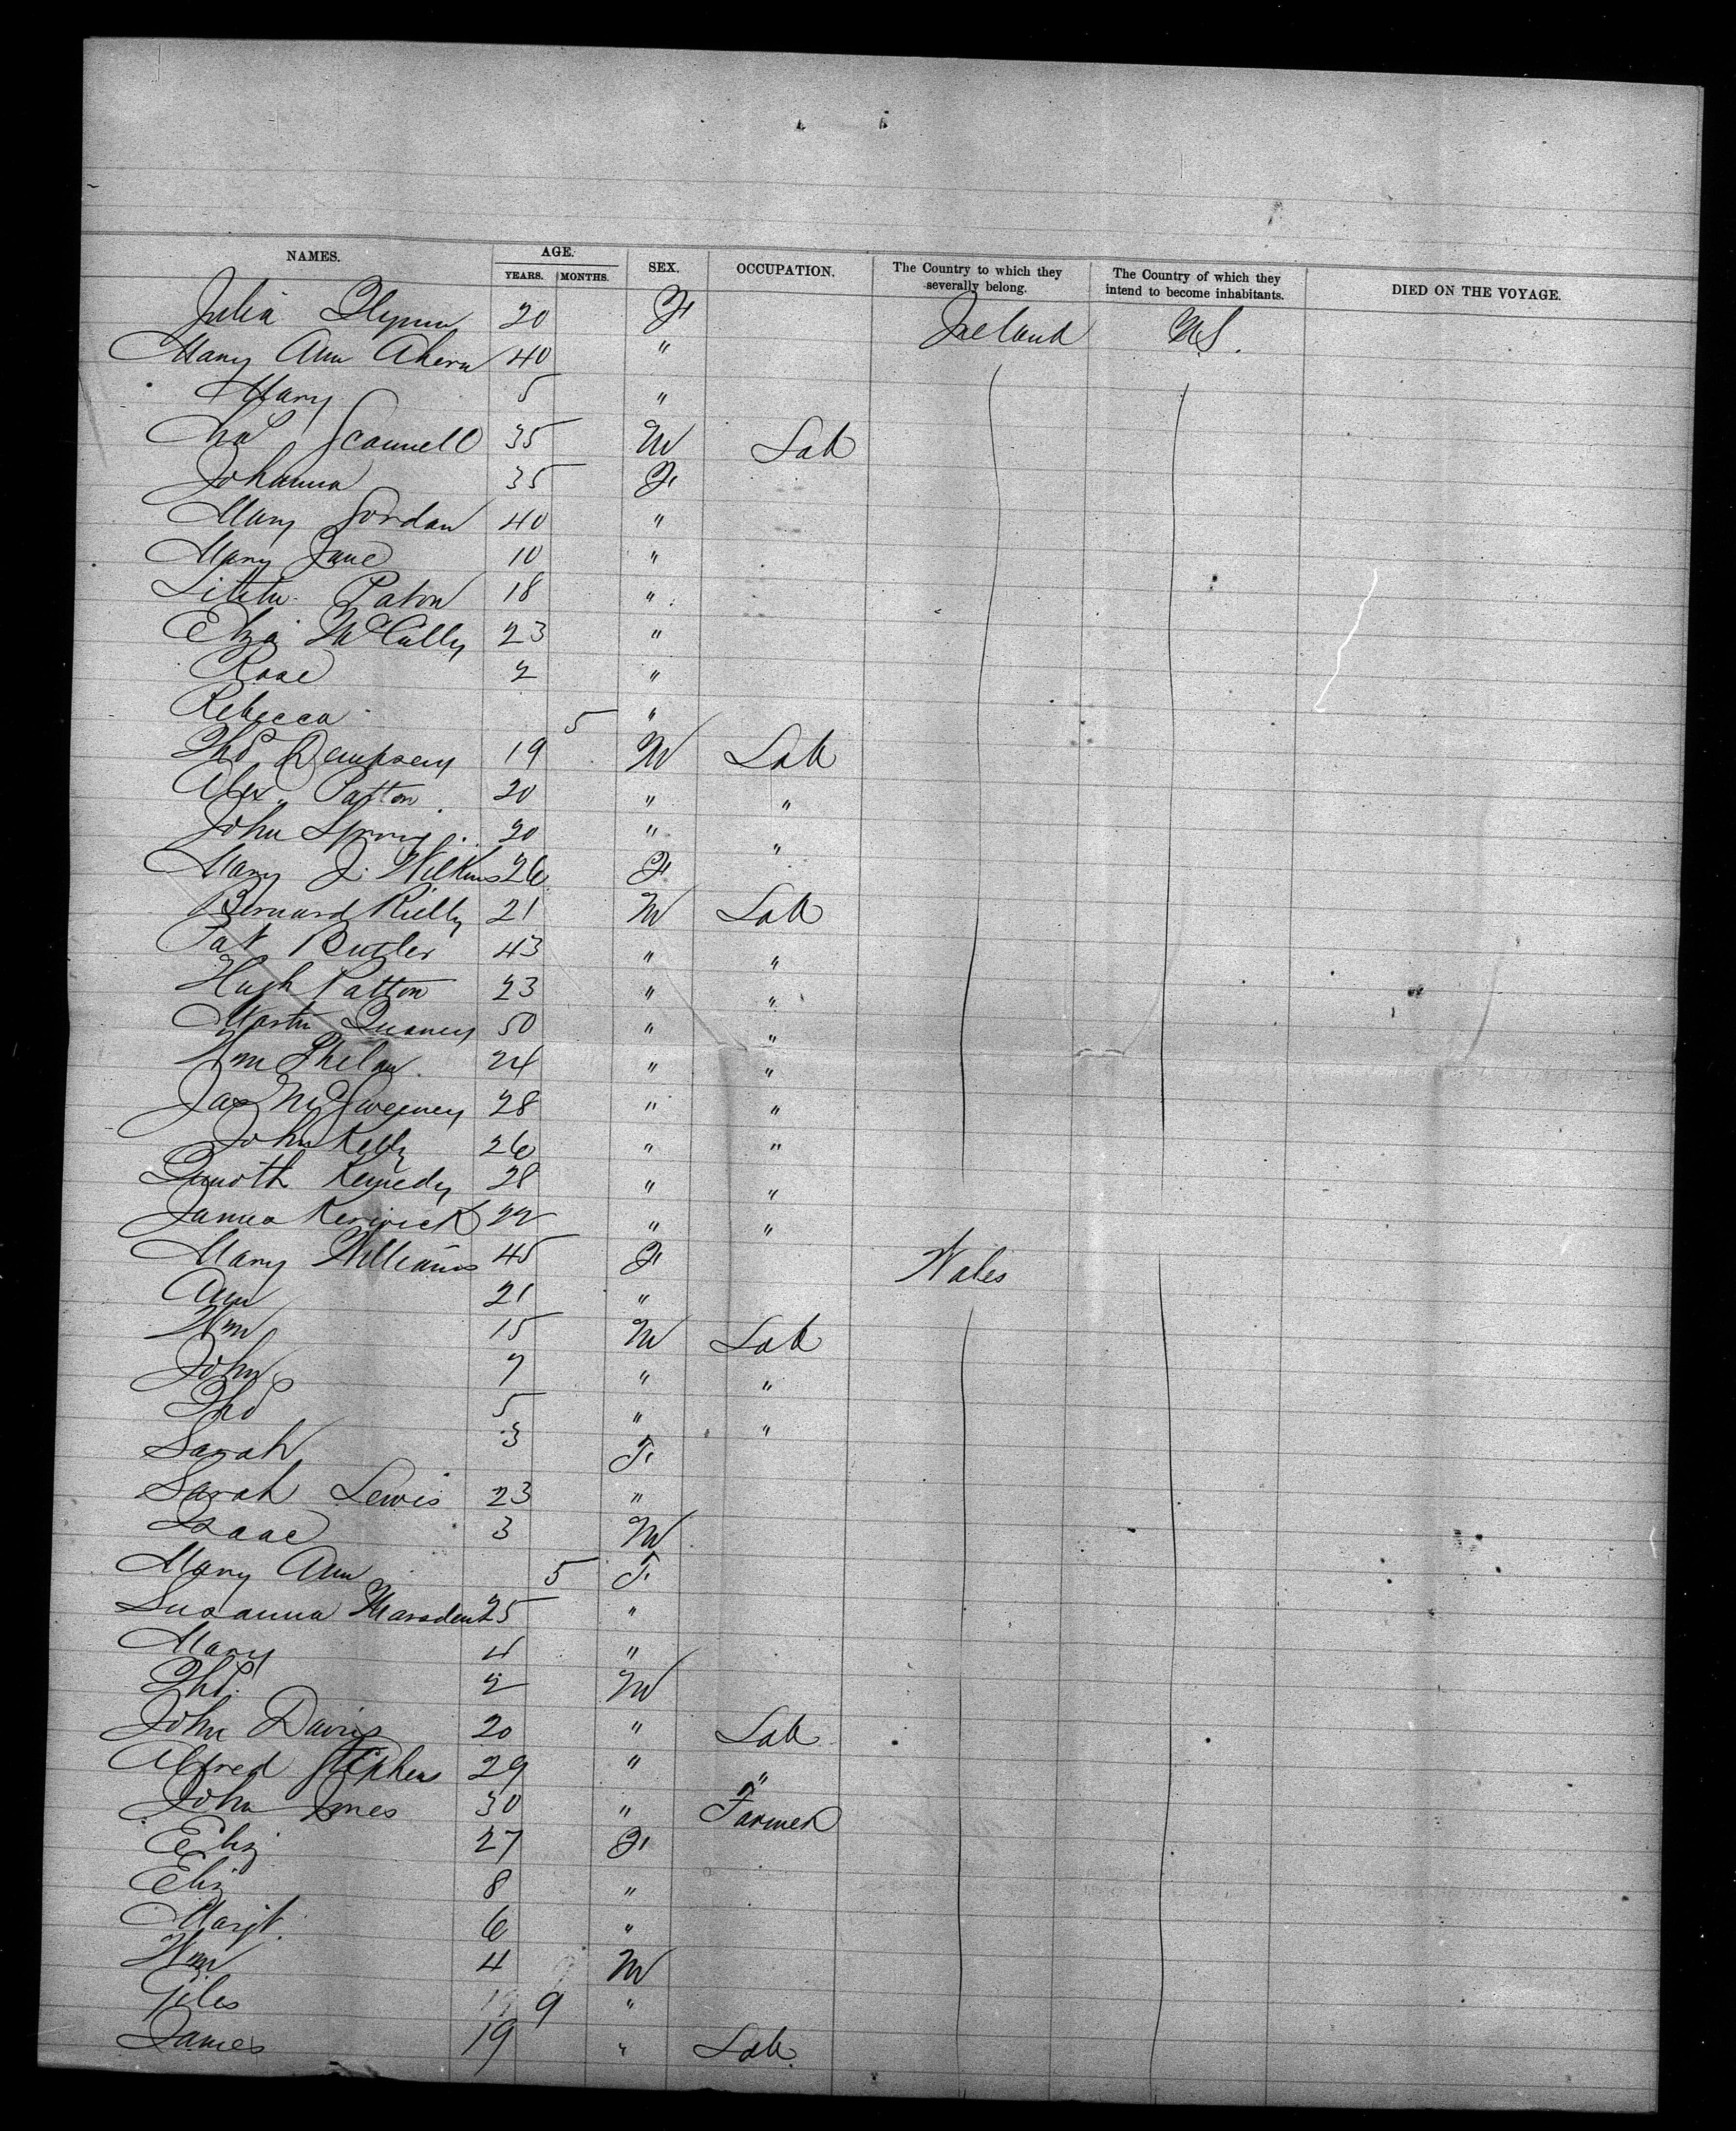 NAMES. AGE. SEX. OCCUPATION. The Country to which they severally belong. The Country of which they intend to become inhabitants. DIED ON THE VOYAGE.
YEARS. MONTHS.
Julia 20 F Ireland U.S.
Mary Ann Ahern 40 "
Mary 5 "
Scannell 35 M Lab
Johanna 35 F
Mary Jordan 40 "
Mary Jane 10 "
Paton 18 "
Eliza McCully 23 "
Rose 2 "
Rebecca 5 "
Thos Dempsey 19 M Lab
Alex. Patton 20 " "
John Spring 20 " "
Mary J. Wilkins 26 F
Bernard Rielly 21 M Lab
Pat Butler 43 " "
Hugh Patton 23 " "
Martin 50 " "
Wm Phelan 24 " "
Jas McSweeney 28 " "
John Kelly 26 " "
Kennedy 28 " "
James Kerwick 22 " "
Mary Williams 45 F Wales
Ann 21 "
Wm 15 M Lab
John 7 " "
Thos 5 " "
Sarah 3 F
Sarah Lewis 23 "
Isaac 3 M
Mary Ann 5 F
Susanna Marsden 25 "
Mary 4 "
Thos. 2 M
John Davies 20 " Lab
Alfred Stephens 29 " "
John Jones 30 " Farmer
Eliz 27 F
Eliz 8 "
Margt. 6 "
Wm 4 M
Giles 9 "
James 19 " Lab.